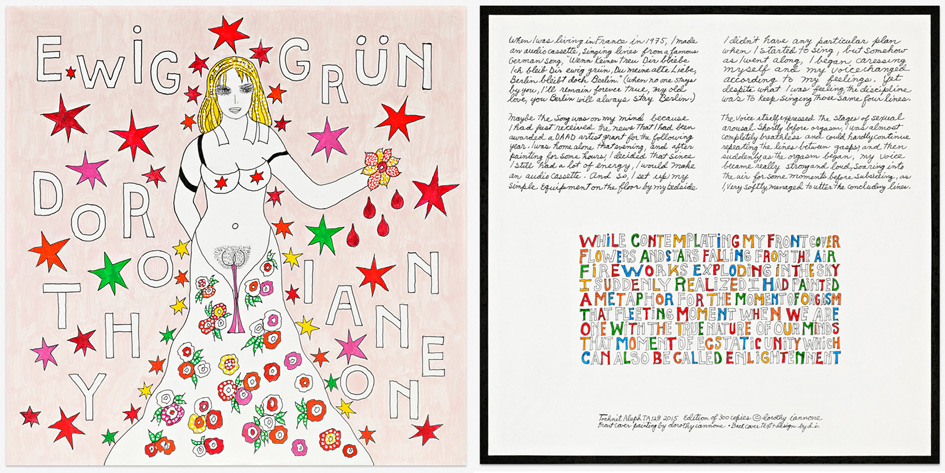 EWIG GRÜN
DOROTHY IANNONE
When I was living in France in 1975, I made
an audio cassette, singing lines from a famous
German song, "Wenn Keiner Treu Dir bliebe
Ich bleib Dir ewig grün, Du meine alte Liebe,
Berlin bleibt doch Berlin." (When no one stays
by you, I'll remain forever true, my old
love, you Berlin will always stay Berlin.)
Maybe the song was on my mind because
I had just received the news that I had been
awarded a DAAD artist grant for the following
year. I was home alone, that evening, and after
painting for some hours, I decided that since
I still had a lot of energy, I would make
an audio cassette. And so, I set up my
simple equipment on the floor by my bedside.
I didn't have any particular plan
when I started to sing, but somehow
as I went along, I began caressing
myself and my voice changed
according to my feelings. Yet
despite what I was feeling, the discipline
was to keep singing those same four lines.
The voice itself expressed the stages of sexual
arousal. Shortly before orgasm, I was almost
completely breathless and could hardly continue
repeating the lines between gasps, and then
suddenly as the orgasm began, my voice
became really strong and loud, soaring into
the air for some moments before subsiding, as
I, very softly managed to utter the concluding lines.
WHILE CONTEMPLATING MY FRONT COVER
FLOWERS AND STARS FALLING FROM THE AIR
FIREWORKS EXPLODING IN THE SKY
I SUDDENLY REALIZED I HAD PAINTED
A METAPHOR FOR THE MOMENT OF ORGASM
THAT FLEETING MOMENT WHEN WE ARE
ONE WITH THE TRUE NATURE OF OUR MINDS
THAT MOMENT OF ECSTATIC UNITY WHICH
CAN ALSO BE CALLED ENLIGHTENMENT
Tochnit Aleph TA128 2015 Edition of 300 copies © dorothy iannone
Front cover painting by dorothy iannone • Back cover text + design by d.i.